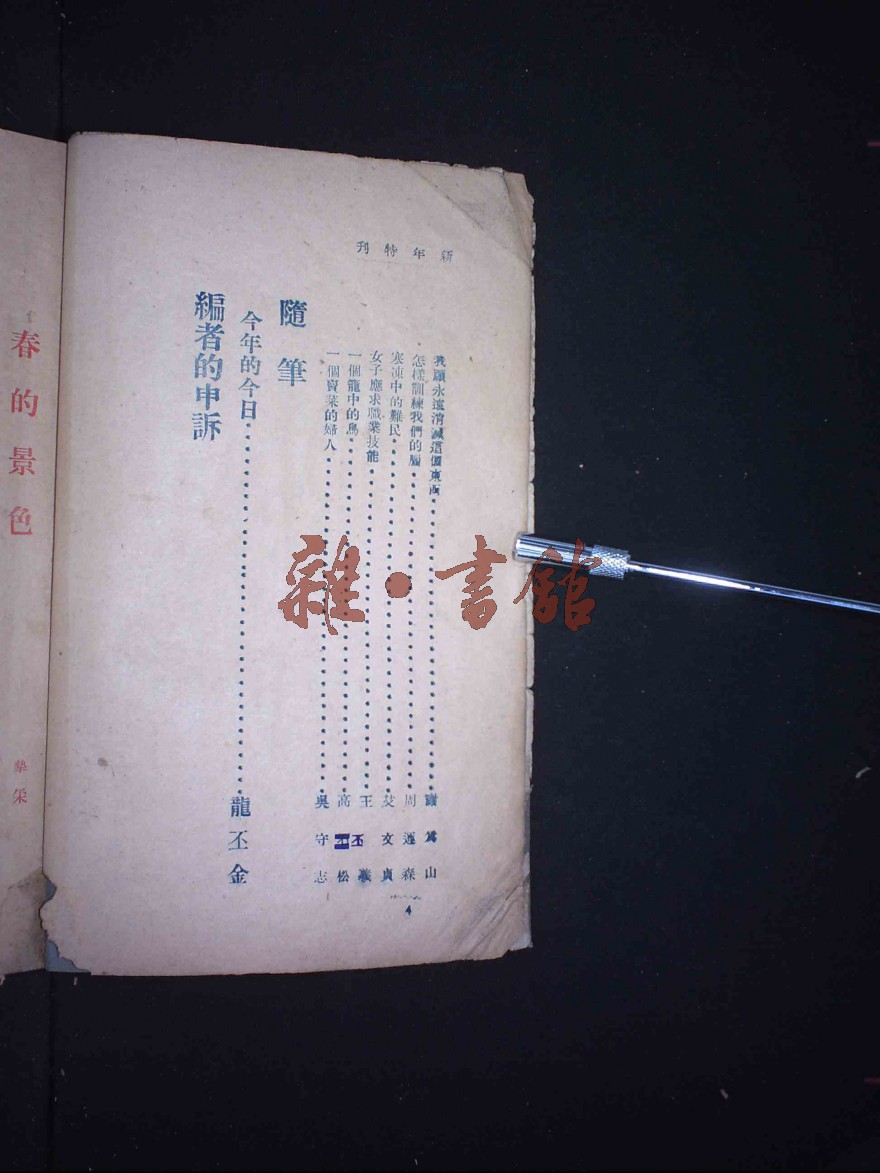 新年特刊
我願永遠消滅這個東西 山
怎樣訓練我們的 周運森
寒凍中的難民 艾文貞
女子應求職業技能 王丕義
一個籠中的鳥 高松
一個賣菜的婦人 吳守志
隨筆
今年的今日 龍丕金
編者的申訴
4
春的景色
雜·書館